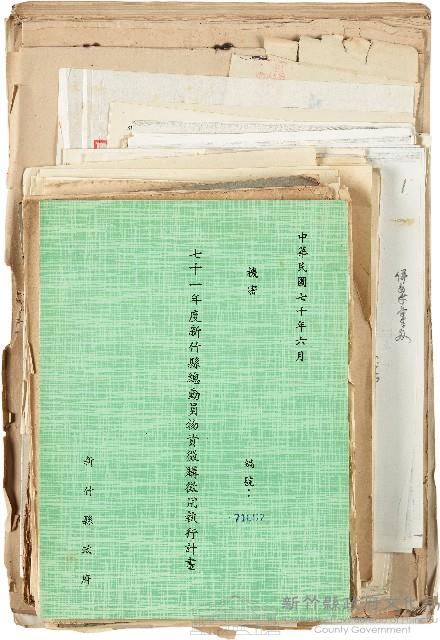 中華民國七十年六月
機密
編號：
七十一年度新竹縣總動員物資徵購徵用執行計畫
新竹縣政府
1
新竹縣政府
County Government